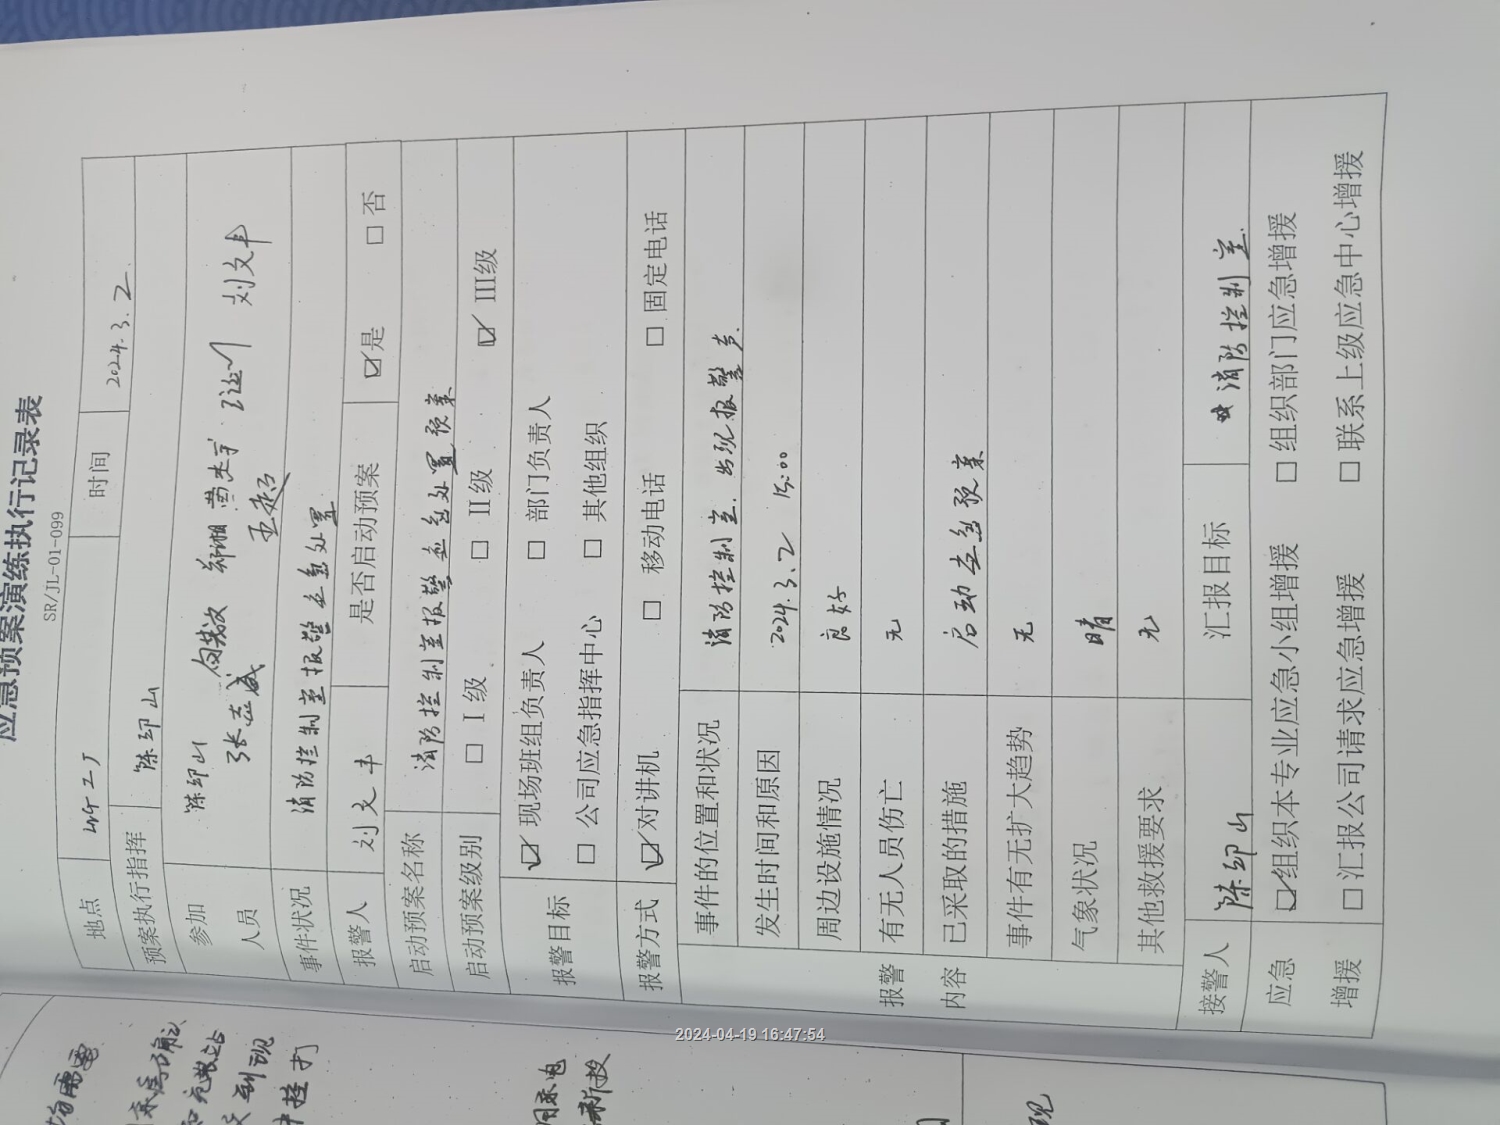 应急预案演练执行记录表
SR/JL-01-099
地点 时间 2024.3.2
预案执行指挥 陈印山
参加人员 陈印山 郑湘 刘文丰
王超
事件状况 消防控制室报警应急处置
报警人 刘文丰 是否启动预案 ☑是 □否
启动预案名称 消防控制室报警应急处置预案
启动预案级别 □ I级 □ II级 ☑ III级
报警目标 ☑ 现场班组负责人 □ 部门负责人
□ 公司应急指挥中心 □ 其他组织
报警方式 ☑ 对讲机 □ 移动电话 □ 固定电话
报警内容
事件的位置和状况 消防控制室.出现报警声.
发生时间和原因 2024.3.2 15:00
周边设施情况 良好
有无人员伤亡 无
已采取的措施 启动应急预案
事件有无扩大趋势 无
气象状况 晴
其他救援要求 无
接警人 陈印山 汇报目标 消防控制室.
应急增援 ☑组织本专业应急小组增援 □ 组织部门应急增援
□ 汇报公司请求应急增援 □ 联系上级应急中心增援
2024-04-19 16:47:54